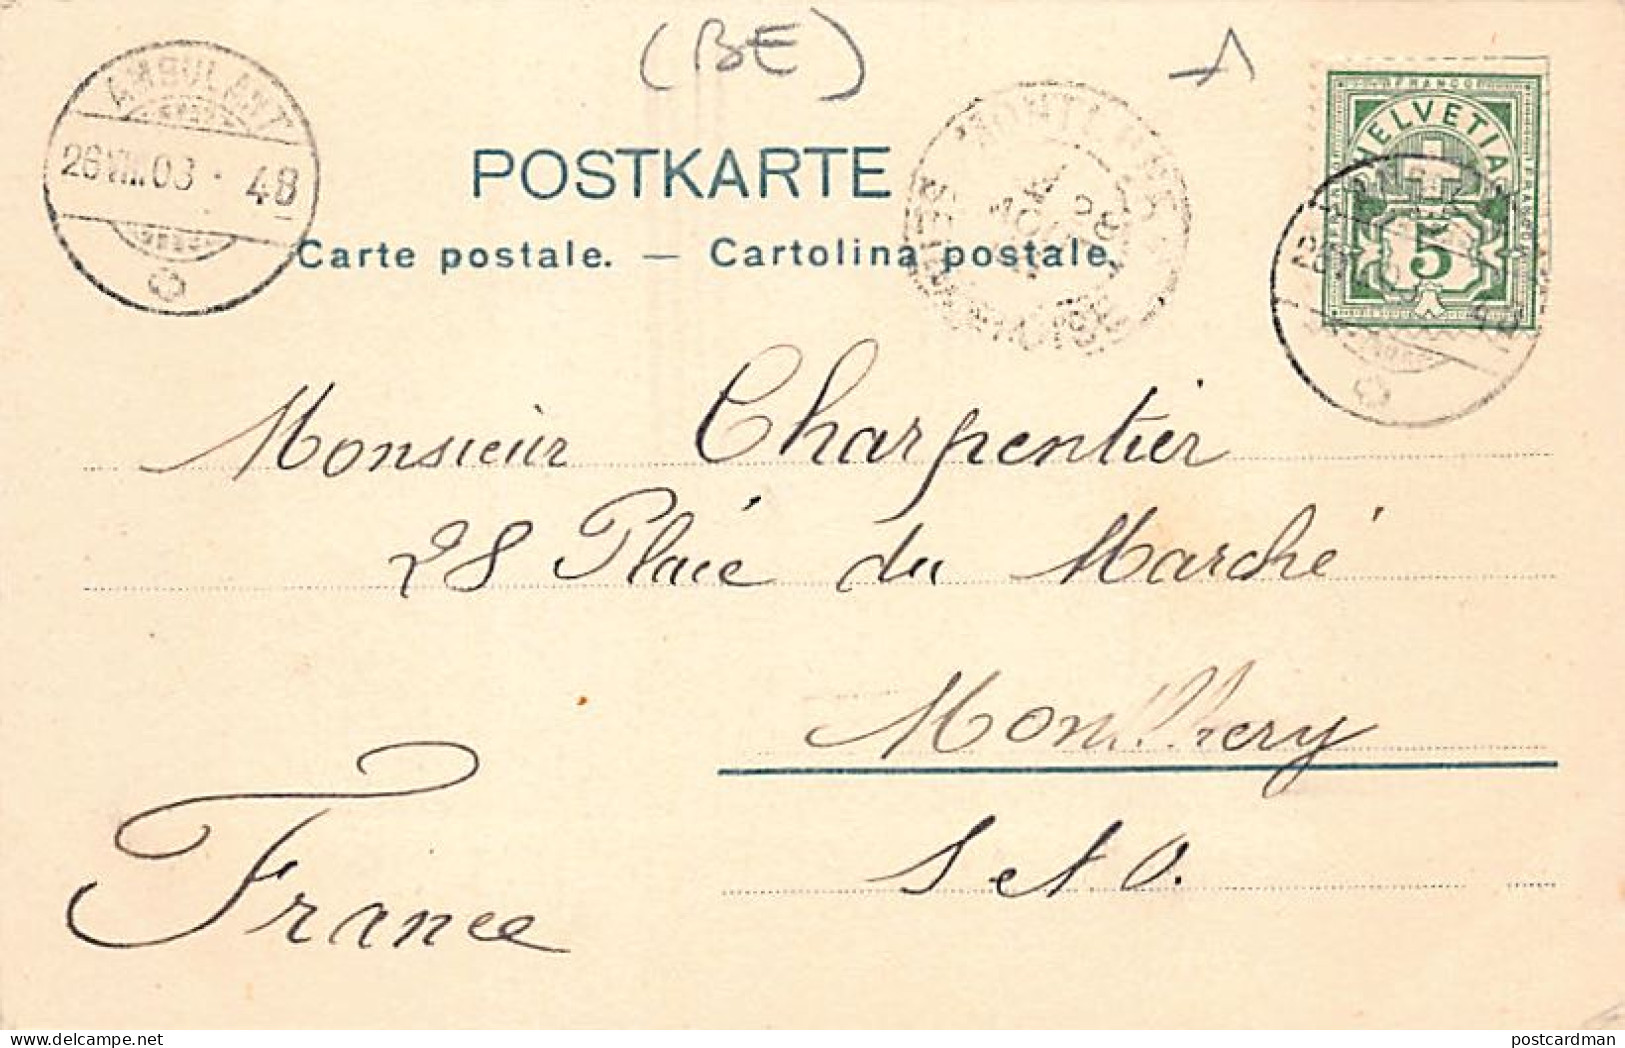 (BE)
AMBULANT
26 VIII. 03 · 48
FRANCO
HELVETIA
5
POSTKARTE
Carte postale. — Cartolina postale.
Monsieur Charpentier
28 Place du Marché
Montlhery
S et O.
France
postcardman